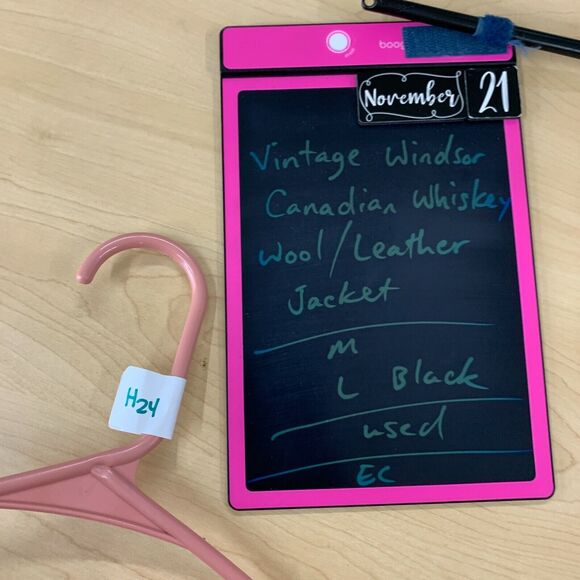 boog
November 21
Vintage Windsor
Canadian Whiskey
Wool/Leather
Jacket
M
L Black
used
EC
H24